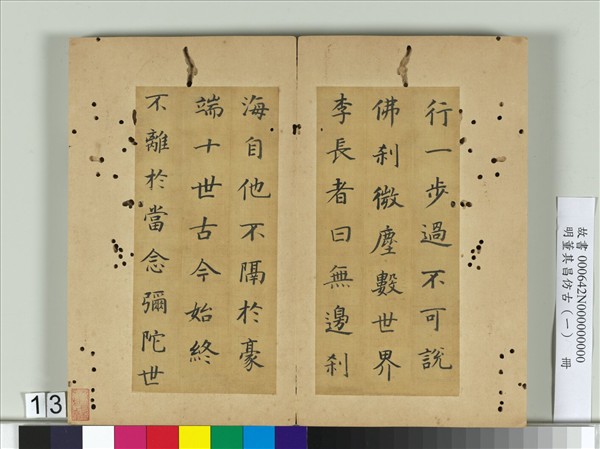 行一步過不可說
佛刹微塵數世界
李長者曰無邊刹
海自他不隔於豪
端十世古今始終
不離於當念彌陀世
故書 000642N000000000
明董其昌仿古(一) 冊
13